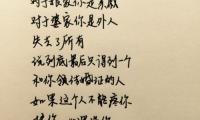 对于娘家你是亲戚
对于婆家你是外人
失去了所有
说到底最后只得到一个
和你领结婚证的人
如果这个人不能疼你